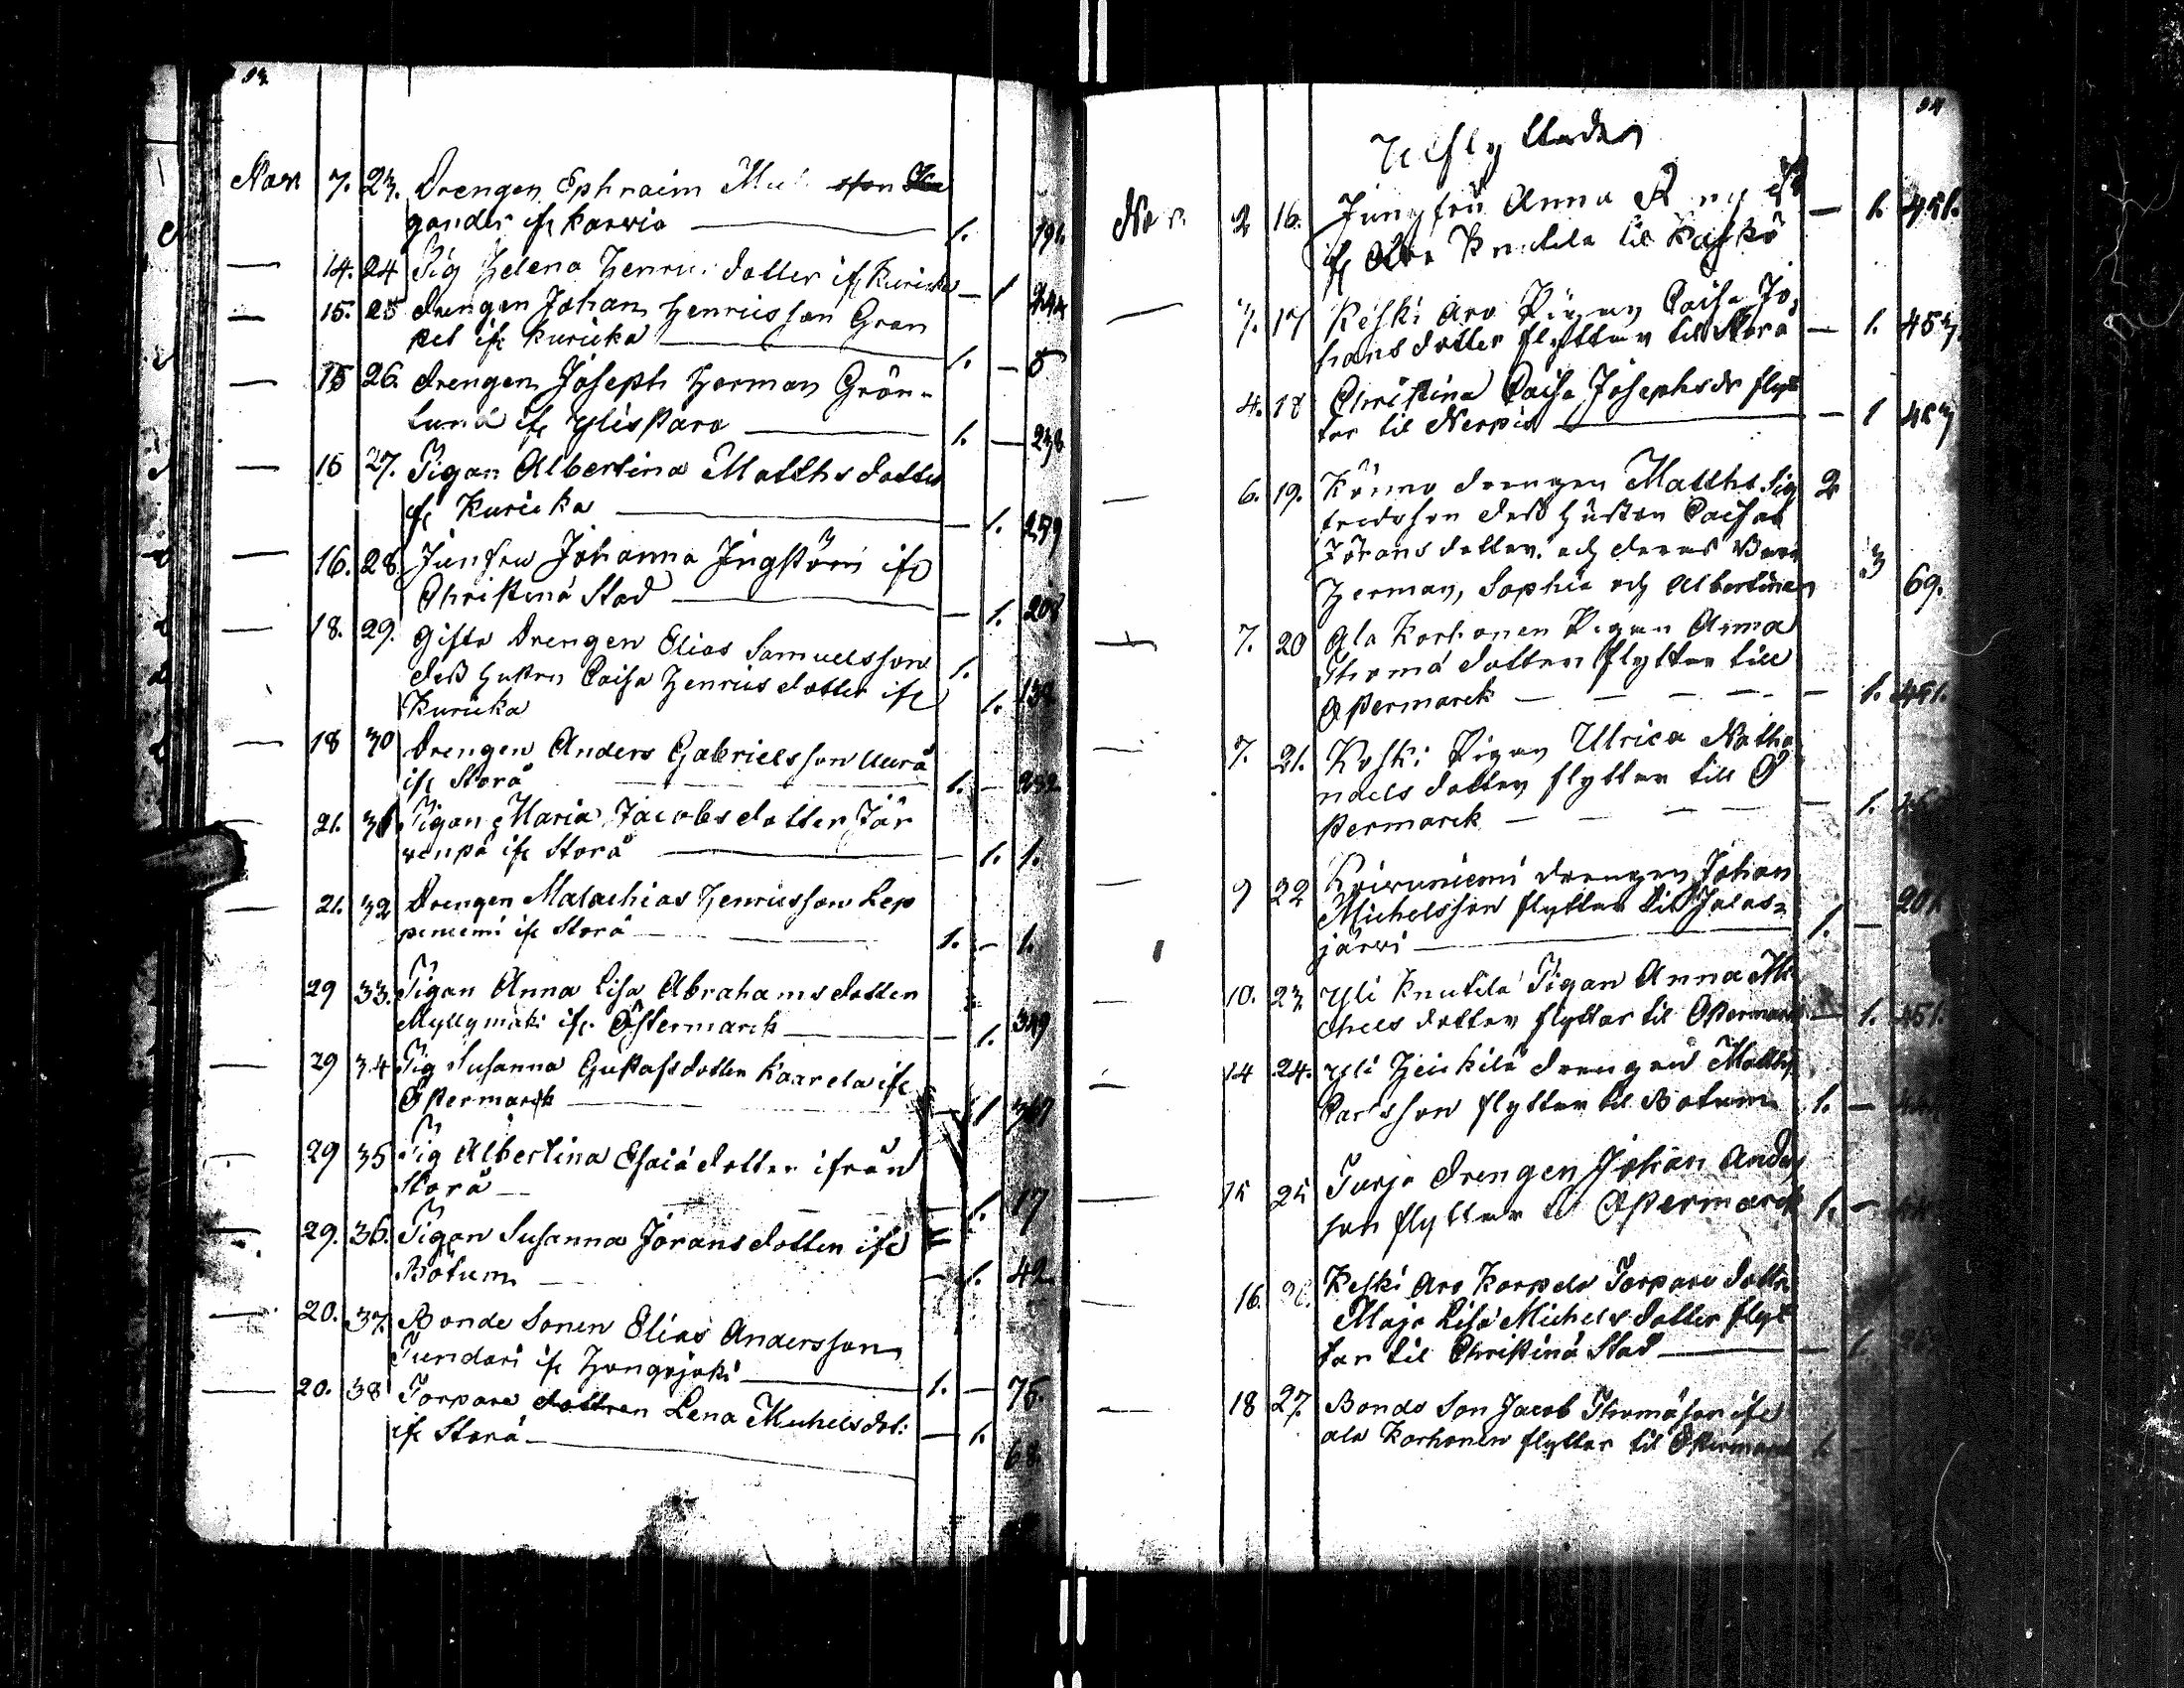 Nov 7. 23. Drengen Ephraim
gander ifr Karvia 1. 191.
14. 24 Pig Helena Henricsdotter ifr Kuricka – 1
15. 25 Drengen Johan Henricsson Gran
ifr Kuricka 1. – 5
15 26. Drengen Joseph Herman Grön-
lund ifr Ylistaro 1. – 238
15 27. Pigan Albertina Matthsdotter
ifr Kuricka – 1. 259
16. 28 Jungfru Johanna ifr
Christinæ Stad – 1. 208
18. 29. Gifta Drengen Elias Samuelsson
dess hustru Caisa Henricsdotter ifr 1.
Kuricka 1. 138
18 30 Drengen Anders Gabrielsson
ifr Storå 1. – 232
21. 31 Pigan Maria Jacobsdotter Jär
venpä ifr Storå – 1. 1.
21. 32 Drengen Malachias Henricsson Lep
peniemi ifr Storå 1. – 1.
29 33. Pigan Anna Lisa Abrahamsdotter
Myllymäki ifr Östermarck – 1. 349
29 34 Pig Susanna Gustafsdotter Kaarela ifr
Östermarck – 1
29 35 Pig Albertina Esaiædotter ifrån
Storå – 1. 17
29. 36. Pigan Susanna Jöransdotter ifr
Bötum – 1. 42
20. 37. Bonde Sonen Elias Andersson
ifr Hongojoki 1. – 75.
20. 38 Torpare dottren Lena Michelsdot:
ifr Storå – 1. 68.
24
Utflyttade
Nov 2 16. Jungfru Anna – 1. 451.
ifr Knutila til Kaskö
7. 17 Keski Aro Pigan Caisa Jo
hansdotter flyttar til Storå – 1. 453.
4. 18 Christina Caisa Josephsdr flyt
tar til Nerpis – 1 453
6. 19. Könno drengen Matths Sig 2
fredsson dess hustru Caisa
Jöransdotter och deras Barn
Herman, Sophia och Albertina 3 69.
7. 20 Ala Korhonen Pigan Anna
Thomædotter flyttar till
Östermarck – 1. 451.
7. 21. Koski Pigan Ulrica Natha
naelsdotter flyttar till Ö
stermarck – 1.
9 22 Koivuniemi drengen Johan
Michelsson flyttar til Jalas-
järvi 1. – 201
10. 23 Yli Knutila Pigan Anna Mi
chelsdotter flyttar til Östermarck – 1. 451.
14 24. Yli Heikilä drengen Matths
Carlsson flyttar til Bötum 1. –
15 25 Turja Drengen Johan Anders
son flyttar til Östermarck 1. –
16. 26. Keski Aro Korpela Torpare dotter
Maja Lisa Michelsdotter flyt
tar til Christinæ Stad – 1.
18 27. Bonde Son Jacob Thomæson ifr
Ala Korhonen flyttar til Östermarck 1. –